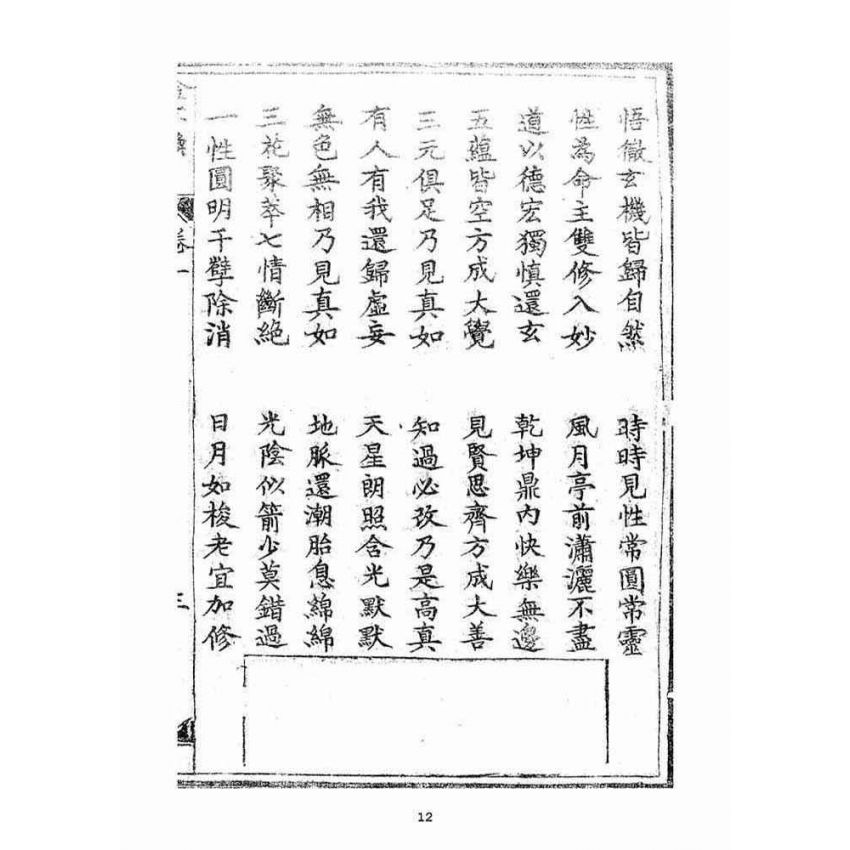 悟徹玄機皆歸自然　時時見性常圓常靈
性為命主雙修入妙　風月亭前瀟灑不盡
道以德宏獨慎還玄　乾坤鼎內快樂無邊
五蘊皆空方成大覺　見賢思齊方成大善
三元俱足乃見真如　知過必改乃是高真
有人有我還歸虛妄　天星朗照含光默默
無色無相乃見真如　地脈還潮胎息綿綿
三花聚萃七情斷絕　光陰似箭少莫錯過
一性圓明千孽除消　日月如梭老宜加修
卷一
三
12